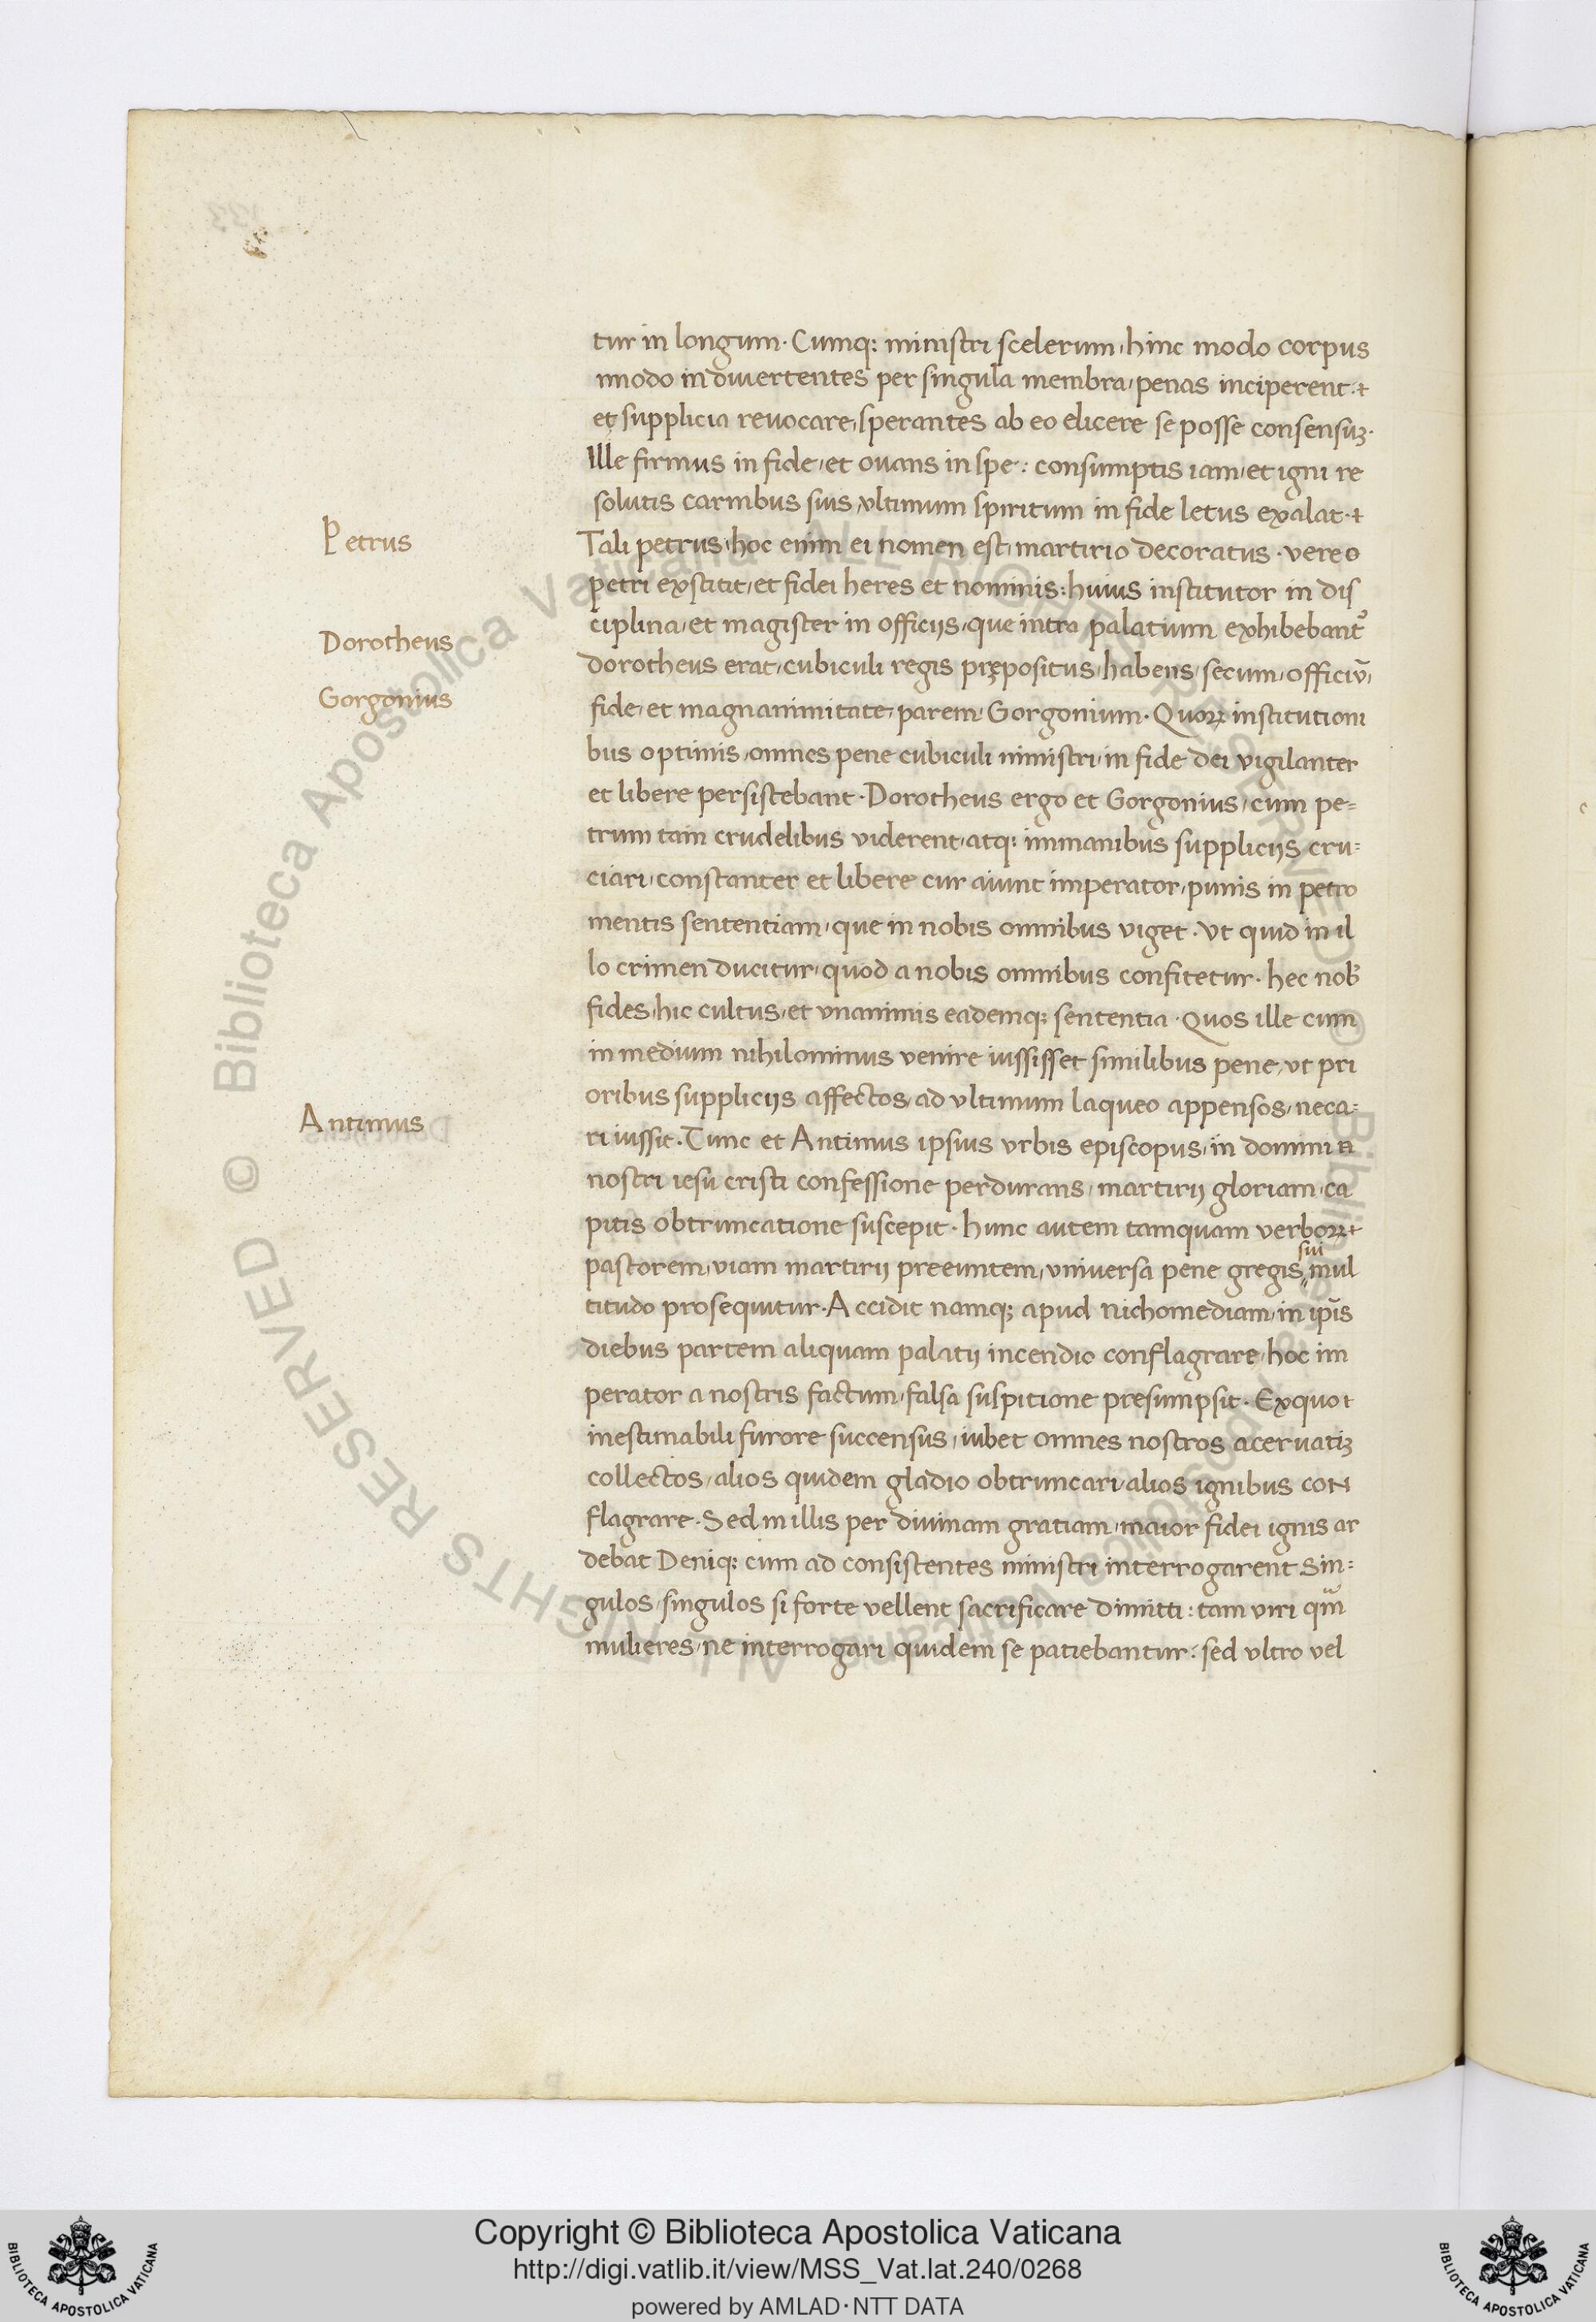 tur in longum· Cumq: ministri scelerum, hinc modo corpus
modo in divertentes per singula membra, penas inciperent·
et supplicia revocare, sperantes ab eo elicere se posse consensuz·
Ille firmus in fide, et ovans in spe: consumptis iam, et igni re
solutis carnibus suis, ultimum spiritum in fide letus exalat·
Petrus
Tali petrus, hoc enim ei nomen est, martirio decoratus· vere o
petri exstitit, et fidei heres et nominis: huius institutor in dis
ciplina, et magister in officijs, que intra palatium exhibebant᷒
Dorotheus
dorotheus erat, cubiculi regis prępositus, habens, secum, officiū,
Gorgonius
fide, et magnanimitate, parem, Gorgonium· Quoꝝ institutioni
bus optimis, omnes pene cubiculi ministri, in fide dei vigilanter
et libere persistebant· Dorotheus ergo et Gorgonius, cum pe=
trum tam crudelibus viderent, atq: immanibus supplicijs cru=
ciari, constanter et libere cur aiunt imperator, punis in petro
mentis sententiam, que in nobis omnibus viget· ut quid in il
lo crimen ducitur, quod a nobis omnibus confitetur· hec nob᷒
fides, hic cultus, et unanimis eademq; sententia· Quos ille cum
in medium nihilominus venire iussisset similibus pene, ut pri
oribus supplicijs affectos, ad ultimum laqueo appensos, neca=
Antimus
ri iussit· Tunc et Antimus ipsius urbis episcopus, in domini n
nostri iesu cristi confessione perdurans, martirij gloriam, ca
pitis obtruncatione suscepit· hunc autem tamquam verboꝝ
pastorem, viam martirij preeuntem, universa pene gregis sui mul
titudo prosequitur· Accidit namq; apud nichomediam, in ip̄is
diebus partem aliquam palatij incendio conflagrare, hoc im
perator a nostris factum, falsa suspitione presumpsit· Ex quo
inestimabili furore succensus, iubet omnes nostros acervatiz
collectos, alios quidem gladio obtruncari, alios ignibus con
flagrare· Sed in illis per divinam gratiam, maior fidei ignis ar
debat Deniq: cum ad consistentes ministri interrogarent sin=
gulos, singulos si forte vellent sacrificare dimitti: tam viri qm̄
mulieres, ne interrogari quidem se patiebantur: sed ultro vel
© Biblioteca Apostolica Vaticana ALL RIGHTS RESERVED
Copyright © Biblioteca Apostolica Vaticana
http://digi.vatlib.it/view/MSS_Vat.lat.240/0268
powered by AMLAD·NTT DATA
BIBLIOTECA APOSTOLICA VATICANA
BIBLIOTECA APOSTOLICA VATICANA